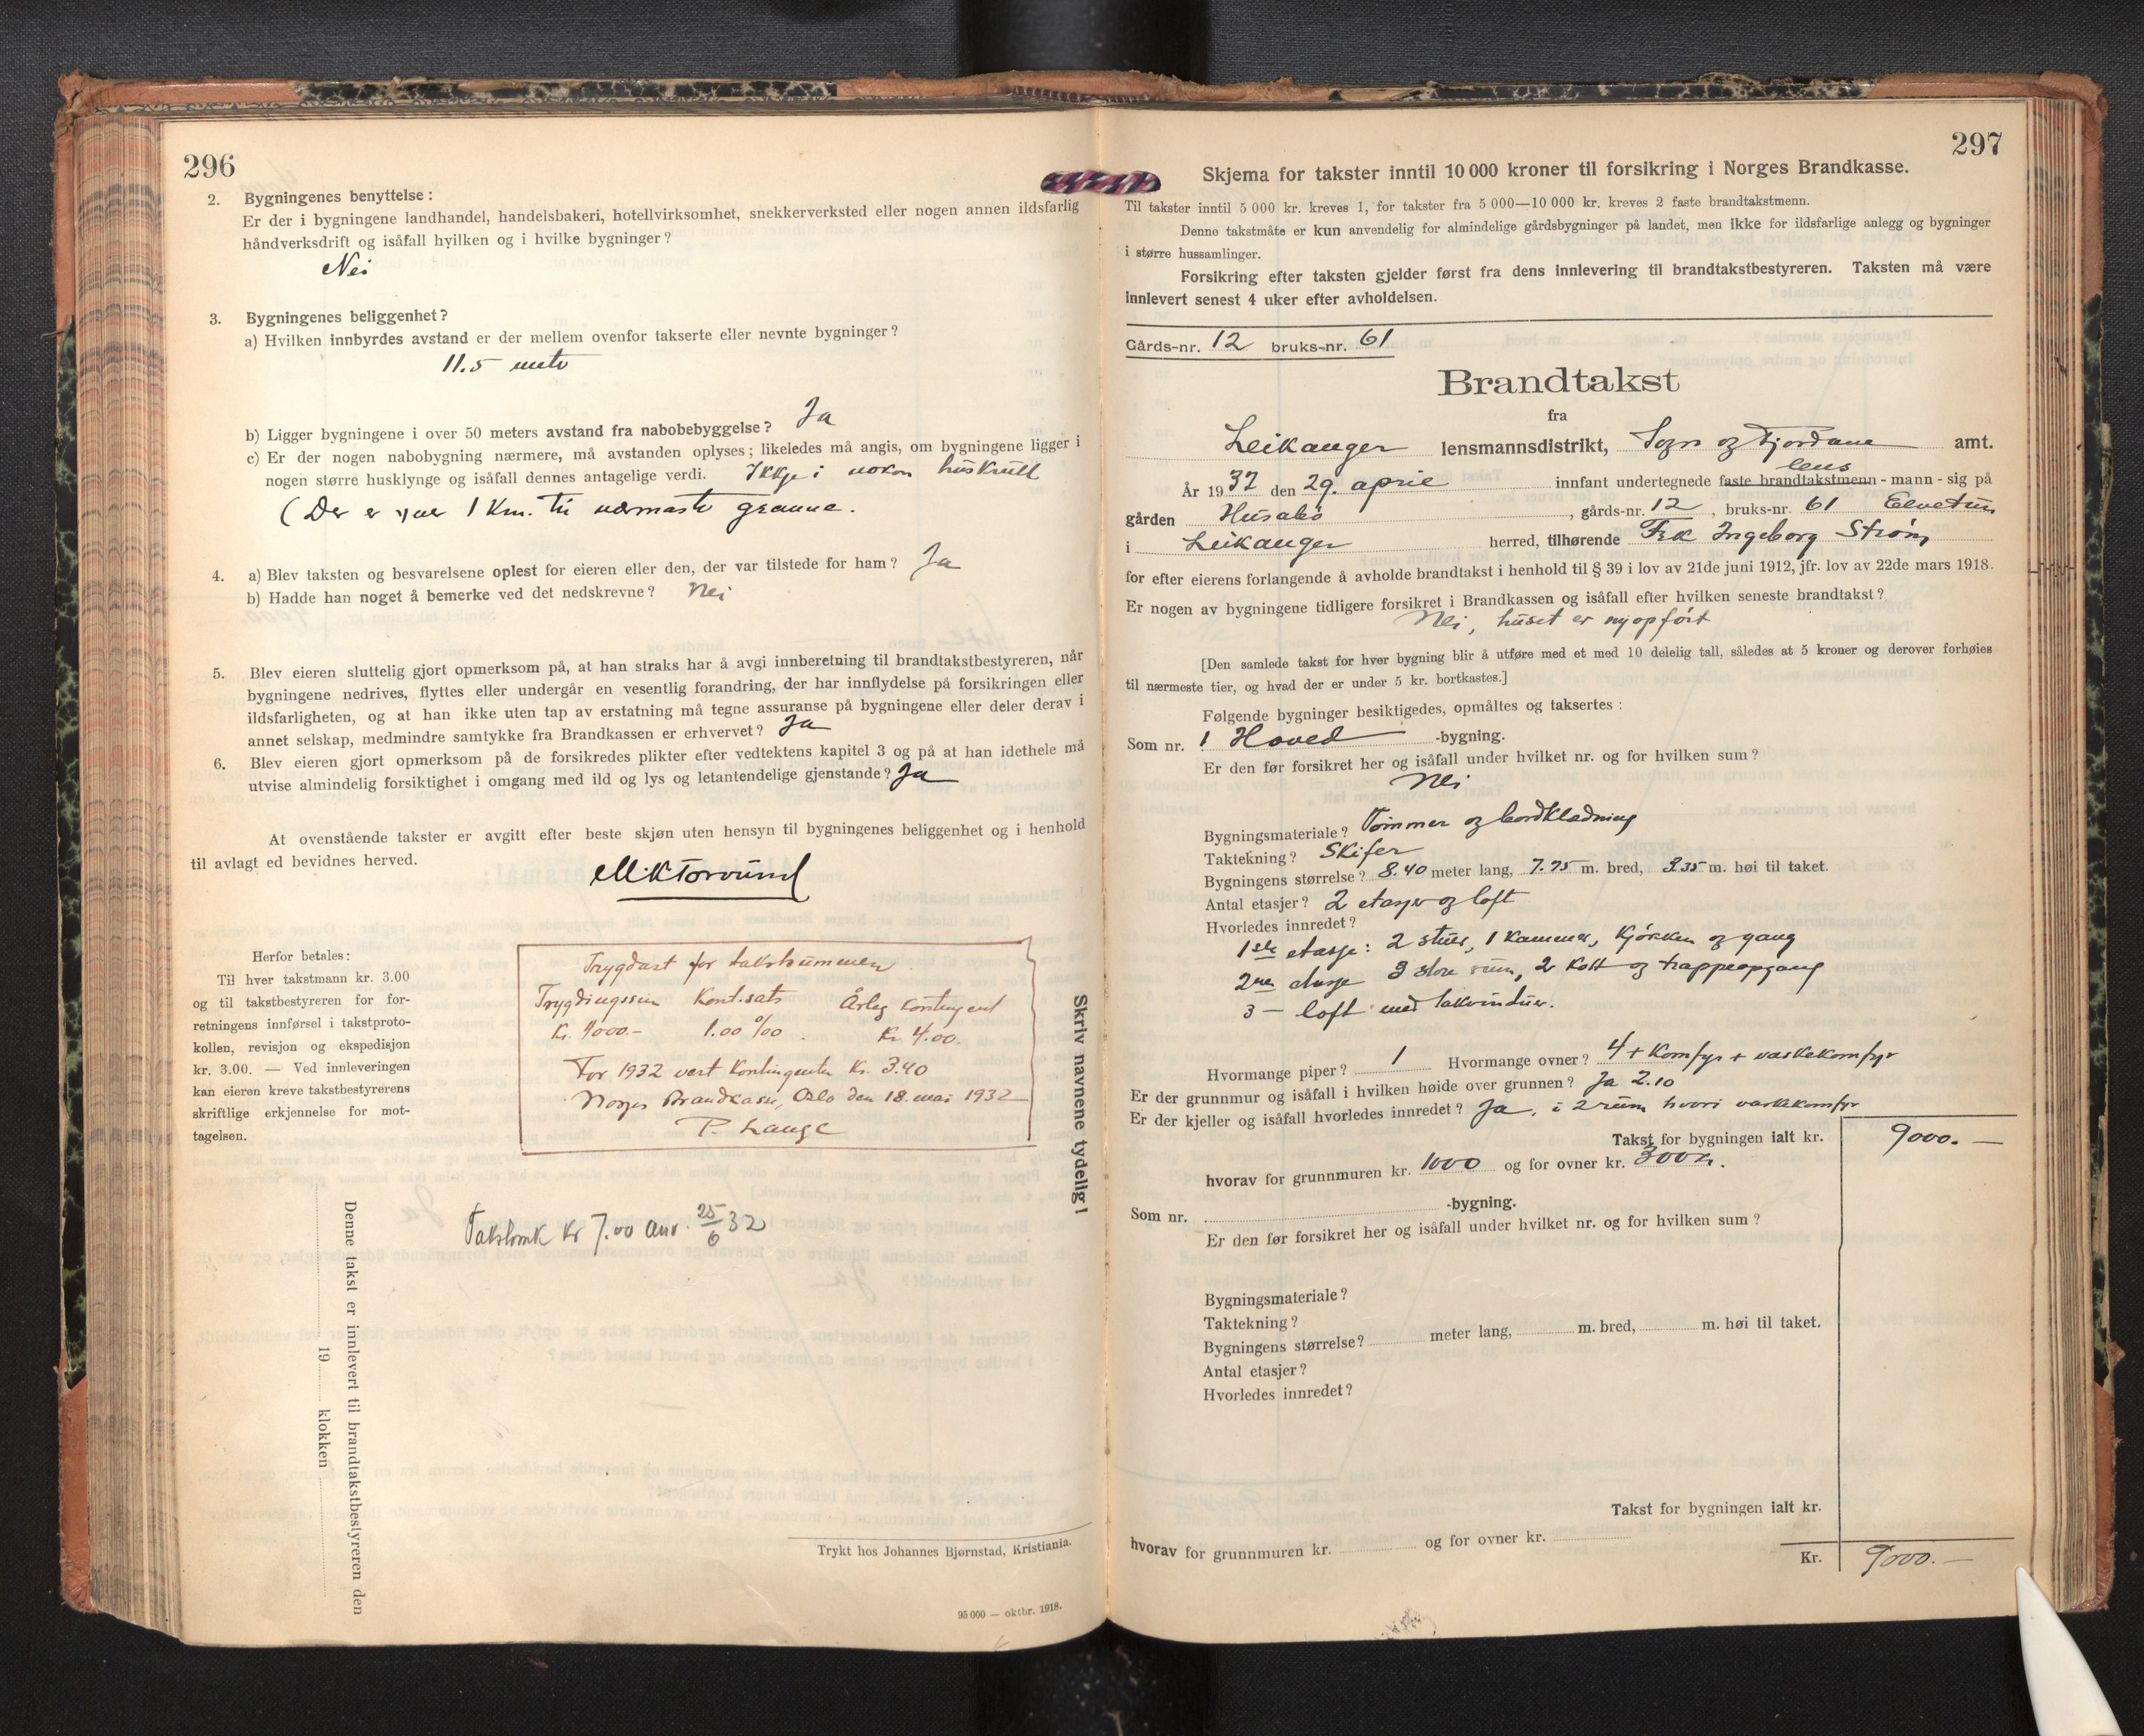 296
2. Bygningenes benyttelse:
Er der i bygningene landhandel, handelsbakeri, hotellvirksomhet, snekkerverksted eller nogen annen ildsfarlig
håndverksdrift og isåfall hvilken og i hvilke bygninger?
Nei
3. Bygningenes beliggenhet?
a) Hvilken innbyrdes avstand er der mellem ovenfor takserte eller nevnte bygninger?
11.5 meter
b) Ligger bygningene i over 50 meters avstand fra nabobebyggelse? Ja
c) Er der nogen nabobygning nærmere, må avstanden oplyses; likeledes må angis, om bygningene ligger i
nogen større husklynge og isåfall dennes antagelige verdi. Ikkje i nokon
(Der er 1 Km. til nærmaste granne.
4. a) Blev taksten og besvarelsene oplest for eieren eller den, der var tilstede for ham? Ja
b) Hadde han noget å bemerke ved det nedskrevne? Nei
5. Blev eieren sluttelig gjort opmerksom på, at han straks har å avgi innberetning til brandtakstbestyreren, når
bygningene nedrives, flyttes eller undergår en vesentlig forandring, der har innflydelse på forsikringen eller
ildsfarligheten, og at han ikke uten tap av erstatning må tegne assuranse på bygningene eller deler derav i
annet selskap, medmindre samtykke fra Brandkassen er erhvervet? Ja
6. Blev eieren gjort opmerksom på de forsikredes plikter efter vedtektens kapitel 3 og på at han idethele må
utvise almindelig forsiktighet i omgang med ild og lys og letantendelige gjenstande? Ja
At ovenstående takster er avgitt efter beste skjøn uten hensyn til bygningenes beliggenhet og i henhold
til avlagt ed bevidnes herved.
Herfor betales:
Til hver takstmann kr. 3.00
og til takstbestyreren for for-
retningens innførsel i takstproto-
kollen, revisjon og ekspedisjon
kr. 3.00. — Ved innleveringen
kan eieren kreve takstbestyrerens
skriftlige erkjennelse for mot-
tagelsen.
Trygdast for takstsummen
Trygdingssum Kont.sats Årleg kontingent
Kr. 9000.- 1.00 ‰ Kr 4.00.
For 1932 vert kontingenten Kr. 3.40
Norges Brandkasse, Oslo den 18. mai 1932
P. Lange
Kr 7.00 25/6 32
Skriv navnene tydelig!
Denne takst er innlevert til brandtakstbestyreren den
19 klokken
Trykt hos Johannes Bjørnstad, Kristiania.
95 000 — oktbr. 1918.
297
Skjema for takster inntil 10 000 kroner til forsikring i Norges Brandkasse.
Til takster inntil 5 000 kr. kreves 1, for takster fra 5 000—10 000 kr. kreves 2 faste brandtakstmenn.
Denne takstmåte er kun anvendelig for almindelige gårdsbygninger på landet, men ikke for ildsfarlige anlegg og bygninger
i større hussamlinger.
Forsikring efter taksten gjelder først fra dens innlevering til brandtakstbestyreren. Taksten må være
innlevert senest 4 uker efter avholdelsen.
Gårds-nr. 12 bruks-nr. 61
Brandtakst
fra
Leikanger lensmannsdistrikt, Sogn og Fjordane amt.
lens
År 1932 den 29. april innfant undertegnede faste brandtakstmenn - mann - sig på
gården Husabø, gårds-nr. 12, bruks-nr. 61 Elvetun
i Leikanger herred, tilhørende Frk Ingeborg Strøm
for efter eierens forlangende å avholde brandtakst i henhold til § 39 i lov av 21de juni 1912, jfr. lov av 22de mars 1918.
Er nogen av bygningene tidligere forsikret i Brandkassen og isåfall efter hvilken seneste brandtakst?
Nei, huset er nyopført
[Den samlede takst for hver bygning blir å utføre med et med 10 delelig tall, således at 5 kroner og derover forhøies
til nærmeste tier, og hvad der er under 5 kr. bortkastes.]
Følgende bygninger besiktigedes, opmåltes og taksertes:
Som nr. 1 Hoved -bygning.
Er den før forsikret her og isåfall under hvilket nr. og for hvilken sum?
Nei
Bygningsmateriale? Tømmer og bordklædning
Taktekning? Skifer
Bygningens størrelse? 8.40 meter lang, 7.75 m. bred, 3.35 m. høi til taket.
Antal etasjer? 2 etasjer og loft
Hvorledes innredet?
1ste etasje: 2 stuer, 1 kammer, kjøkken og gang
2nen etasje 3 store rum, 2 kott og trappeopgang
3 — loft med takvinduer.
Hvormange piper? 1 Hvormange ovner? 4 + komfyr + vaskekomfyr
Er der grunnmur og isåfall i hvilken høide over grunnen? Ja 2.10
Er der kjeller og isåfall hvorledes innredet? Ja, i 2 rum hvori vaskekomfyr
Takst for bygningen ialt kr. 9000.—
hvorav for grunnmuren kr. 1000 og for ovner kr. 300kr.
Som nr. -bygning.
Er den før forsikret her og isåfall under hvilket nr. og for hvilken sum?
Bygningsmateriale?
Taktekning?
Bygningens størrelse? meter lang, m. bred, m. høi til taket.
Antal etasjer?
Hvorledes innredet?
Takst for bygningen ialt kr.
hvorav for grunnmuren kr. og for ovner kr.
Kr. 9000.—